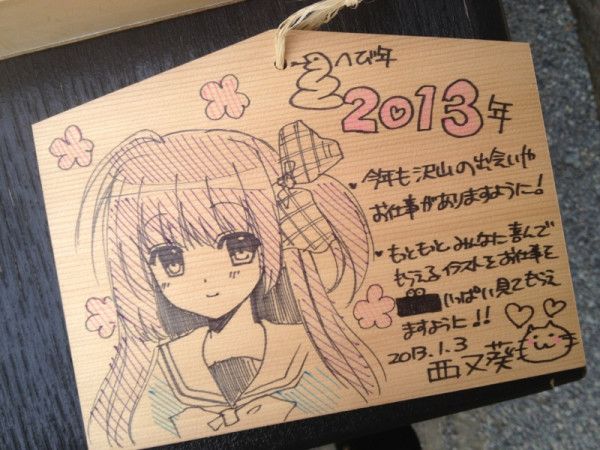 へび年
2013年
・今年も沢山の出会いや
お仕事がありますように!
・もっともっとみんなに喜んで
もらえるイラストをお仕事を
いっぱい見てもらえ
ますように!!
2013.1.3
西又葵